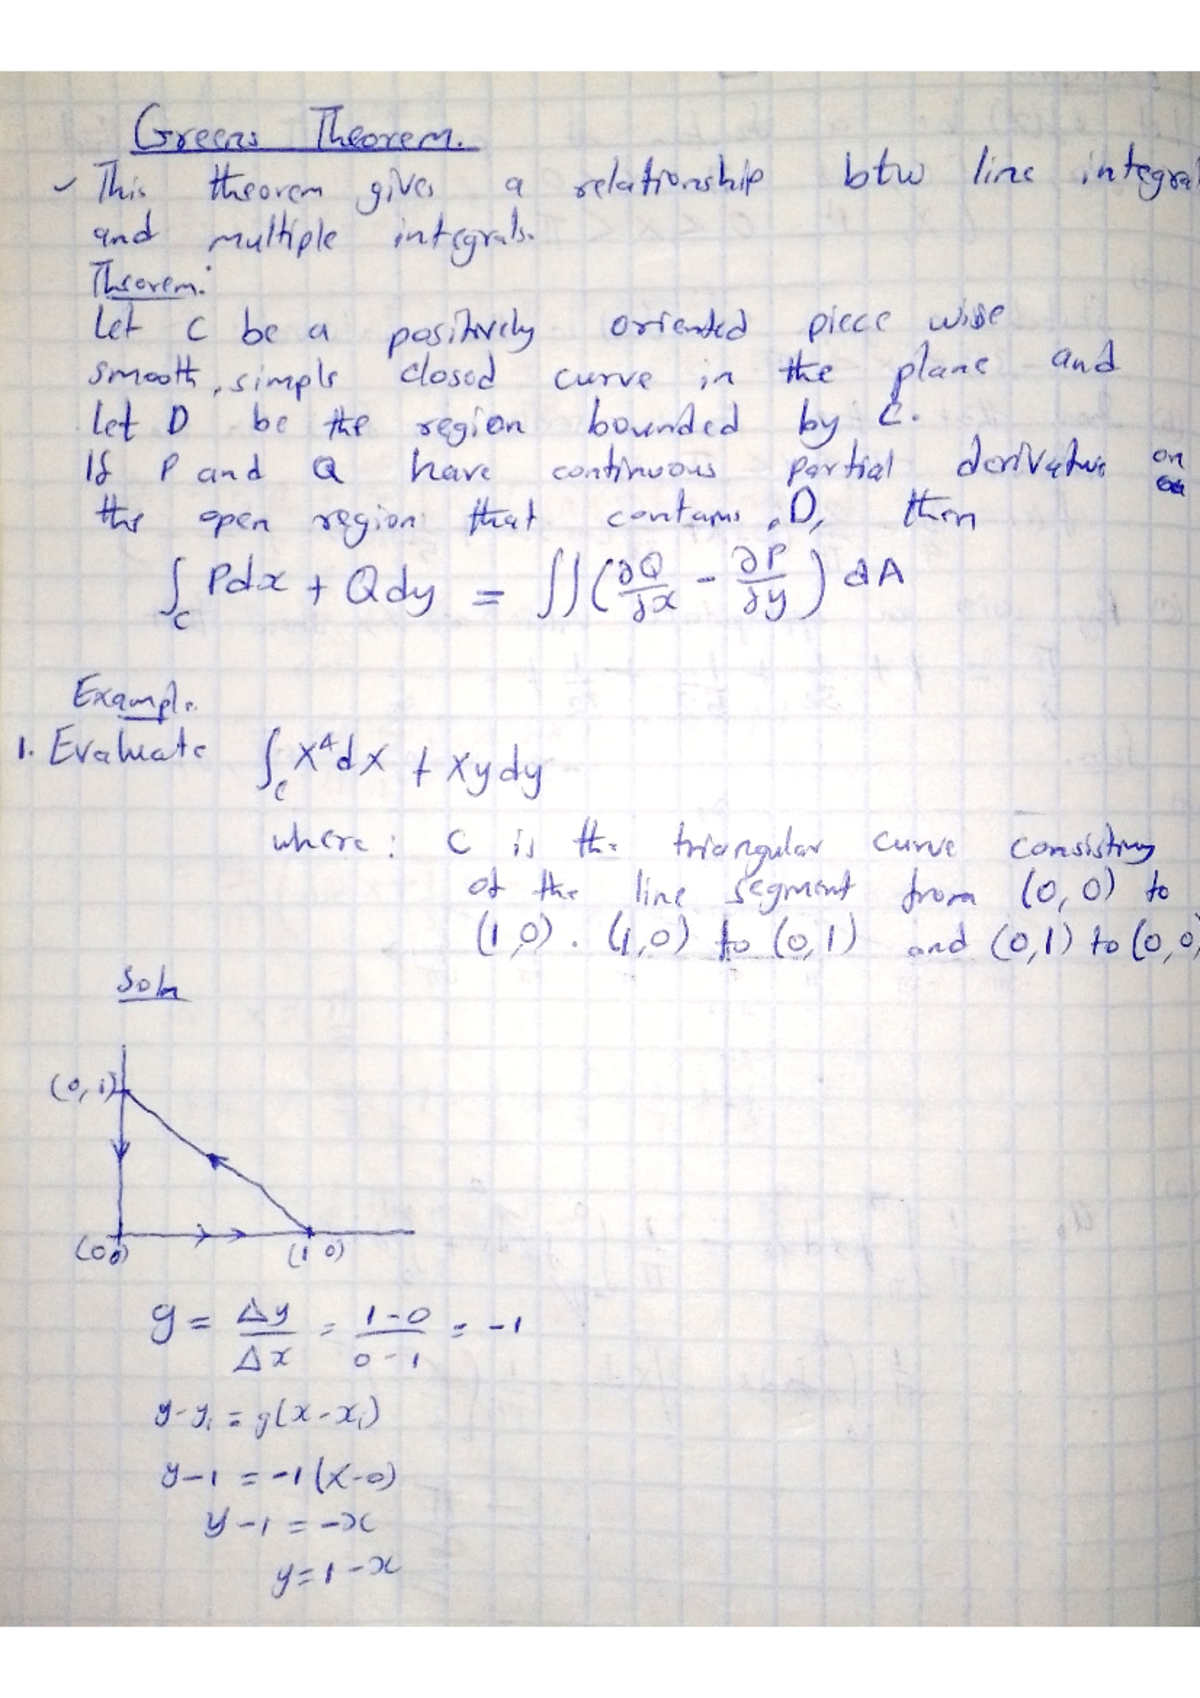 Greens Theorem.
✓ This theorem gives a relationship btw line integral
and multiple integrals.
Theorem:
Let C be a positively oriented piece wise
smooth, simple closed curve in the plane and
Let D be the region bounded by C.
If P and Q have continuous partial derivative on
the open region that contains D, then
∫_C Pdx + Qdy = ∬(∂Q/∂x - ∂P/∂y) dA
Example.
1. Evaluate ∫_C x⁴dx + xydy
where: C is the triangular curve consisting
of the line segment from (0,0) to
(1,0). (1,0) to (0,1) and (0,1) to (0,0)
Soln
(0,1)
(0 0) (1 0)
g = Δy/Δx = 1-0/0-1 = -1
y-y₁ = g(x-x₁)
y-1 = -1(x-0)
y-1 = -x
y=1-x